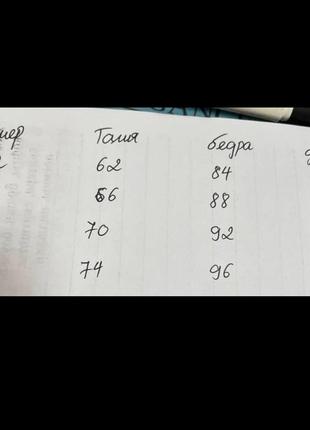 мер Талия бедра
62 84
66 88
70 92
74 96